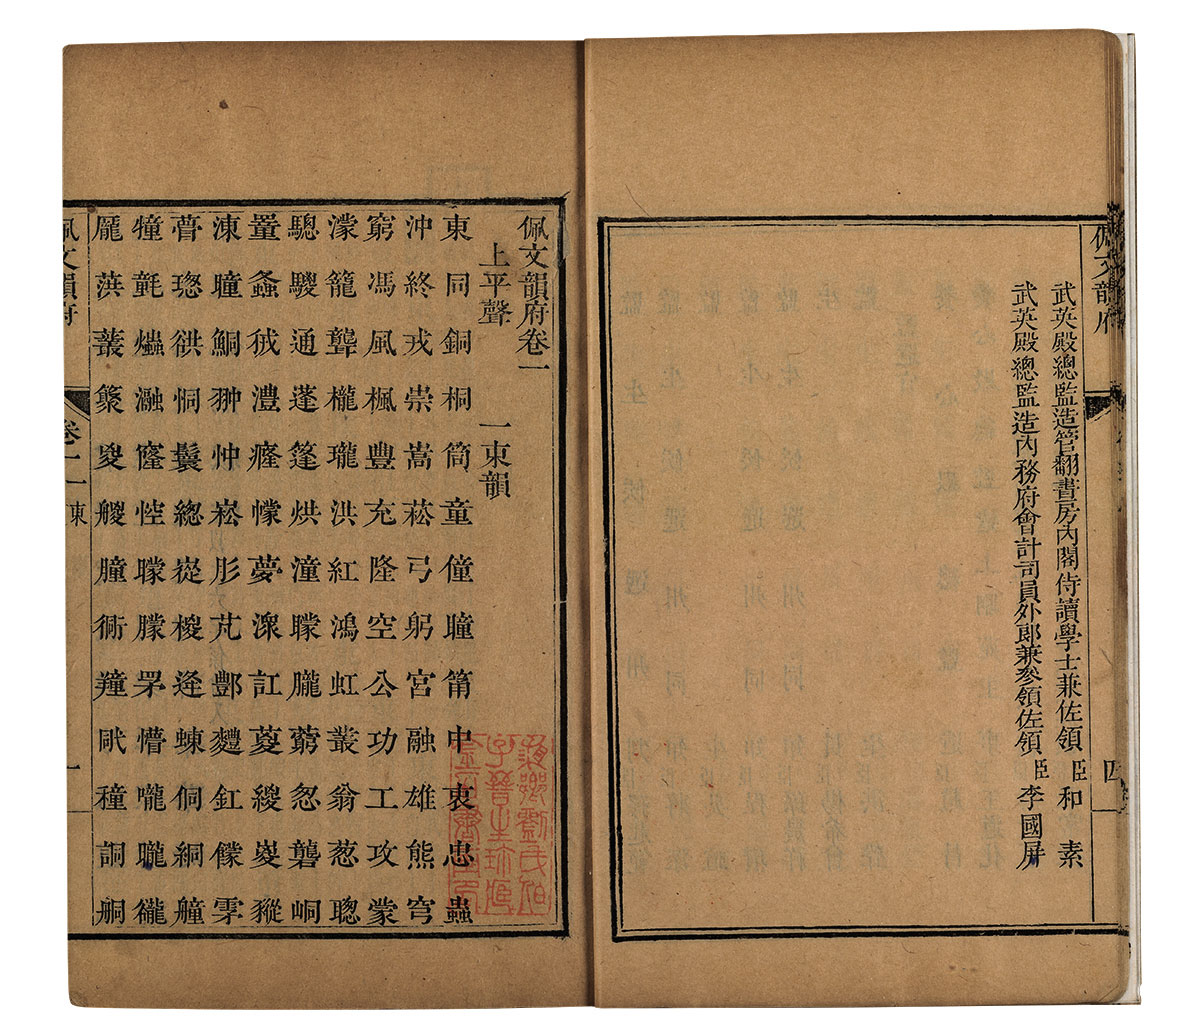 佩文韻府
四
武英殿總監造管翻書房內閣侍讀學士兼佐領臣和素
武英殿總監造內務府會計司員外郎兼參領佐領臣李國屏
佩文韻府卷一
上平聲 一東韻
東同銅桐筒童僮瞳筩中衷忠蟲
沖終戎崇嵩菘弓躬宮融雄熊穹
窮馮風楓豐充隆空公功工攻蒙
濛籠聾櫳瓏洪紅鴻虹叢翁葱聰
驄騣通蓬篷烘潼矇朧藭怱礱峒
罿螽狨灃癃幪夢潨訌葼緵嵏豵
涷曈鮦翀忡崧肜芃酆麷釭饛雺
瞢璁谼恫鬉總嵷椶逄蝀侗絧艟
犝氃爞瀜窿悾曚朦罞懵嚨曨襱
龎葓艐膧衕穜詷
佩文韻府 卷一 一東 一